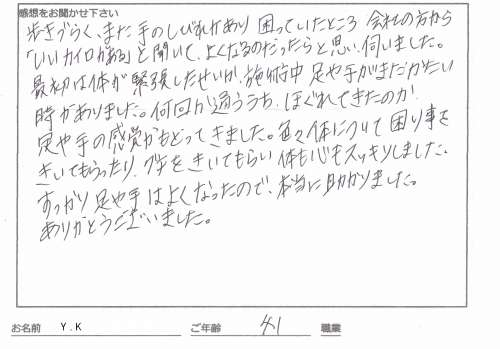 感想をお聞かせ下さい
歩きづらく、また手のしびれがあり 困っていたところ 会社の方から
「いいカイロがある」と聞いて、よくなるのだったらと思い、伺いました。
最初は体が緊張したせいか、施術中 足や手がまだかたい
時がありました。何回か通ううち、ほぐれてきたのか
足や手の感覚がもどってきました。色々体について困り事を
きいてもらったり、グチをきいてもらい 体も心もスッキリしました。
すっかり足や手はよくなったので、本当に助かりました。
ありがとうございました。
お名前 Y.K ご年齢 41 職業